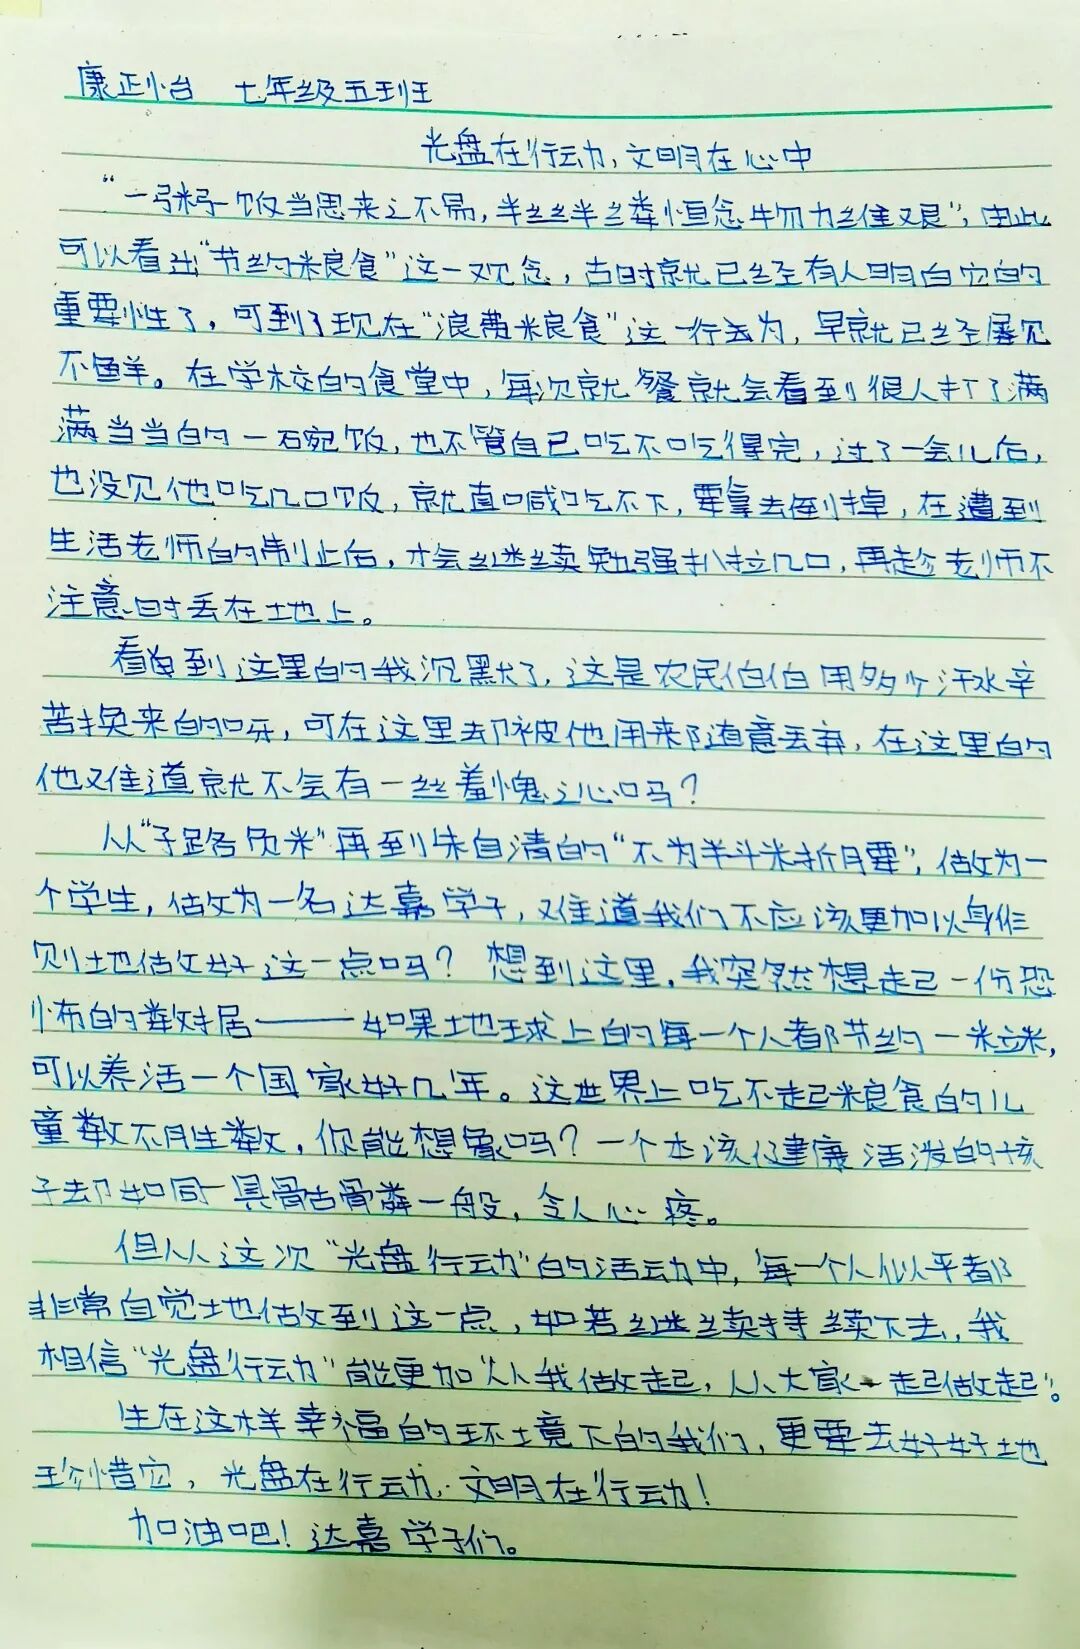 康正怡 七年级五班
光盘在行动，文明在心中
“一粥一饭当思来之不易，半丝半缕恒念物力维艰”，由此
可以看出“节约粮食”这一观念，古时就已经有人明白它的
重要性了，可到了现在“浪费粮食”这一行为，早就已经屡见
不鲜。在学校的食堂中，每次就餐就会看到很人打了满
满当当的一碗饭，也不管自己吃不吃得完，过了一会儿后，
也没见他吃几口饭，就直喊吃不下，要拿去倒掉，在遭到
生活老师的制止后，才会继续勉强扒拉几口，再趁老师不
注意时丢在地上。
看到这里的我沉默了，这是农民伯伯用多少汗水辛
苦换来的呀，可在这里却被他用来随意丢弃，在这里的
他难道就不会有一丝羞愧之心吗？
从“子路负米”再到朱自清的“不为半斗米折腰”，做为一
个学生，做为一名达嘉学子，难道我们不应该更加以身作
则地做好这一点吗？想到这里，我突然想起一份恐
怖的数据——如果地球上的每一个人都节约一粒米，
可以养活一个国家好几年。这世界上吃不起粮食的儿
童数不胜数，你能想象吗？一个本该健康活泼的孩
子却如同一具骷髅一般，令人心疼。
但从这次“光盘行动”的活动中，每一个人似乎都
非常自觉地做到这一点，如若继续持续下去，我
相信“光盘行动”能更加“从我做起，从大家一起做起”。
生在这样幸福的环境下的我们，更要去好好地
珍惜它，光盘在行动，文明在行动！
加油吧！达嘉学子们。